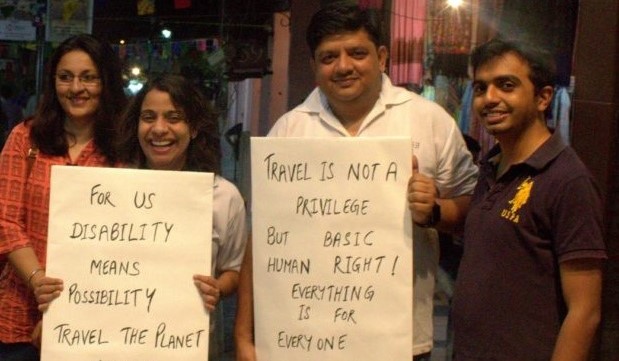 FOR US
DISABILITY
MEANS
POSSIBILITY
TRAVEL THE PLANET
TRAVEL IS NOT A
PRIVILEGE
BUT BASIC
HUMAN RIGHT!
EVERYTHING
IS FOR
EVERYONE
USPA